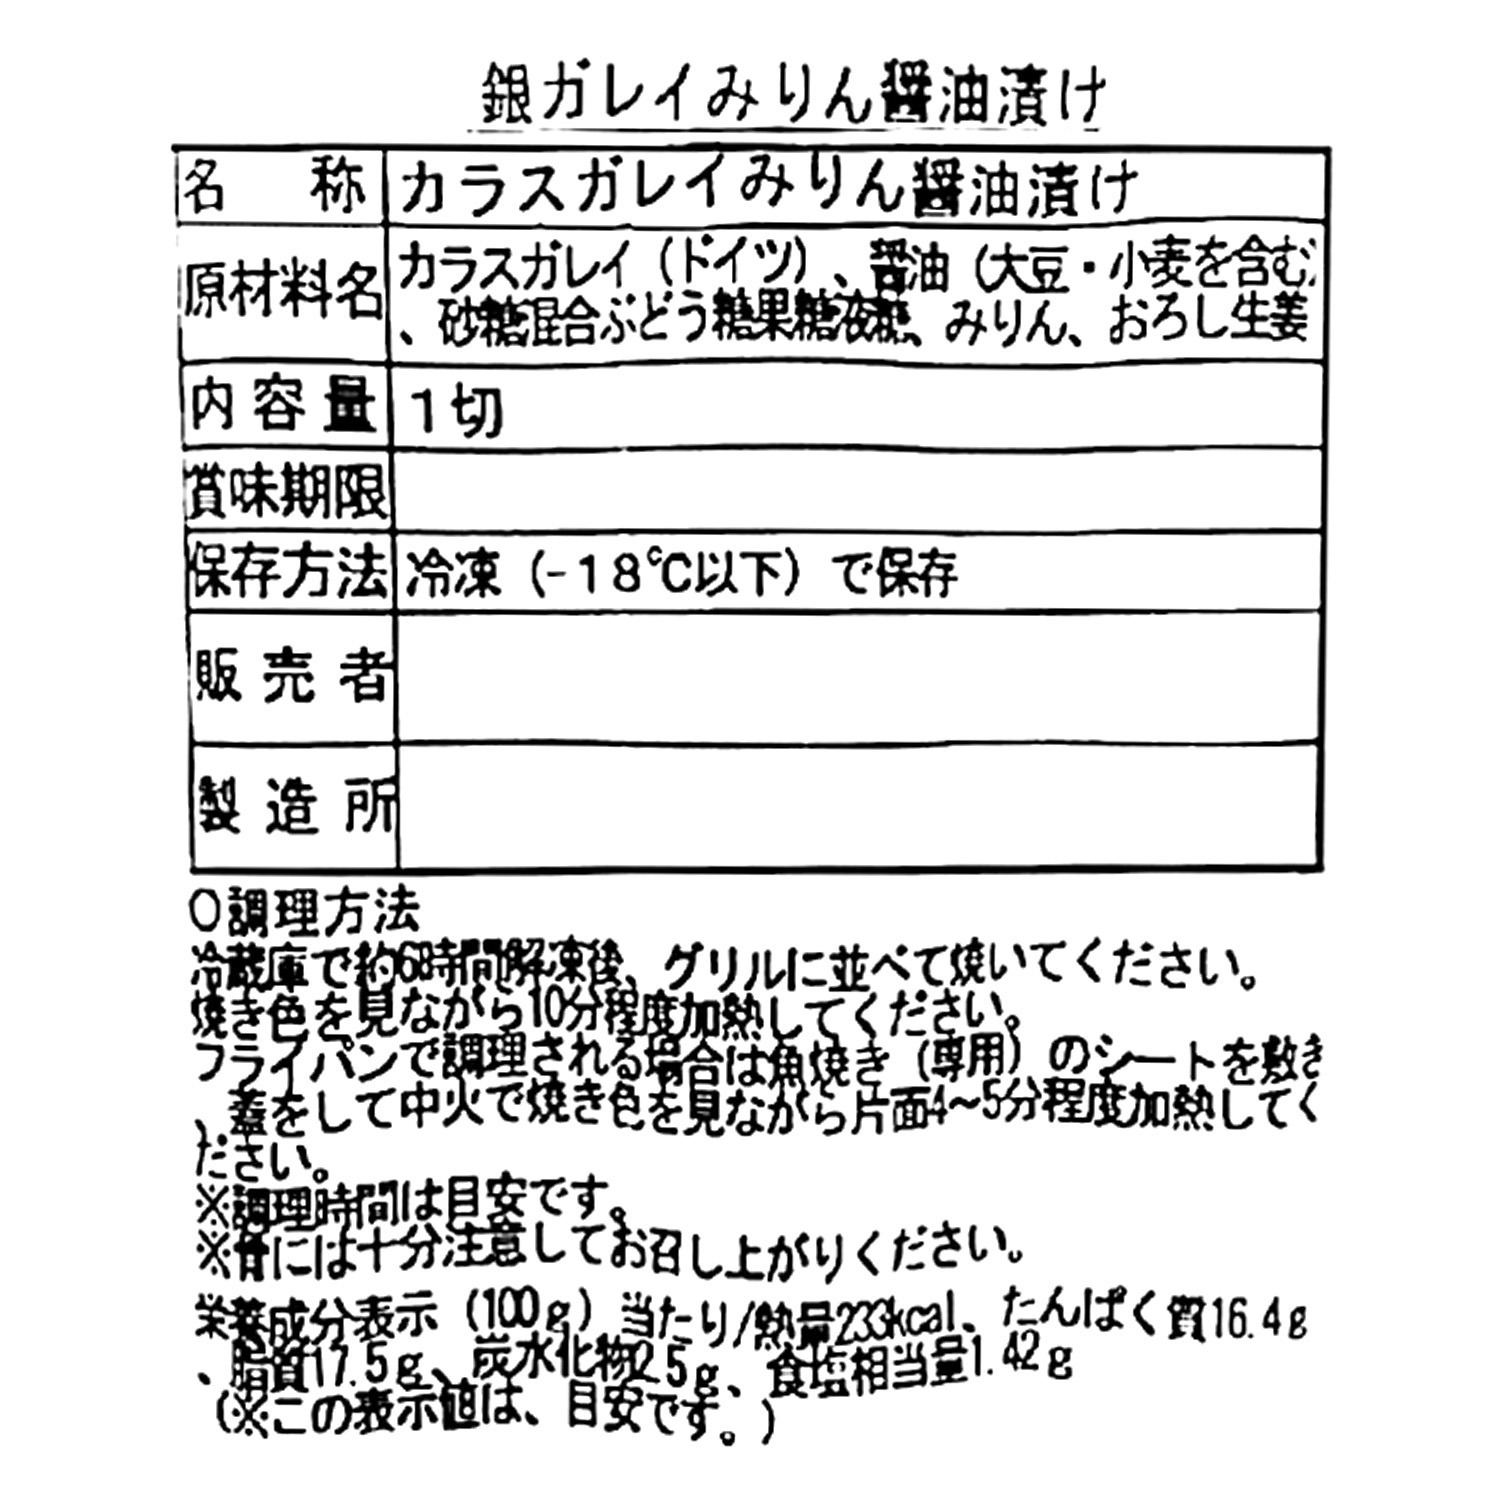 銀ガレイみりん醤油漬け
名称 カラスガレイみりん醤油漬け
原材料名 カラスガレイ（ドイツ）、醤油（大豆・小麦を含む）
、砂糖混合ぶどう糖果糖液糖、みりん、おろし生姜
内容量 1切
賞味期限
保存方法 冷凍（-18℃以下）で保存
販売者
製造所
○調理方法
冷蔵庫で約6時間解凍後、グリルに並べて焼いてください。
焼き色を見ながら10分程度加熱してください。
フライパンで調理される場合は魚焼き（専用）のシートを敷き
、蓋をして中火で焼き色を見ながら片面4～5分程度加熱してく
ださい。
※調理時間は目安です。
※骨には十分注意してお召し上がりください。
栄養成分表示（100g）当たり/熱量233kcal、たんぱく質16.4g
、脂質17.5g、炭水化物2.5g、食塩相当量1.42g
（※この表示値は、目安です。）